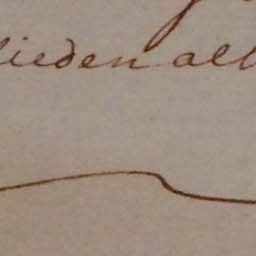 lieden all